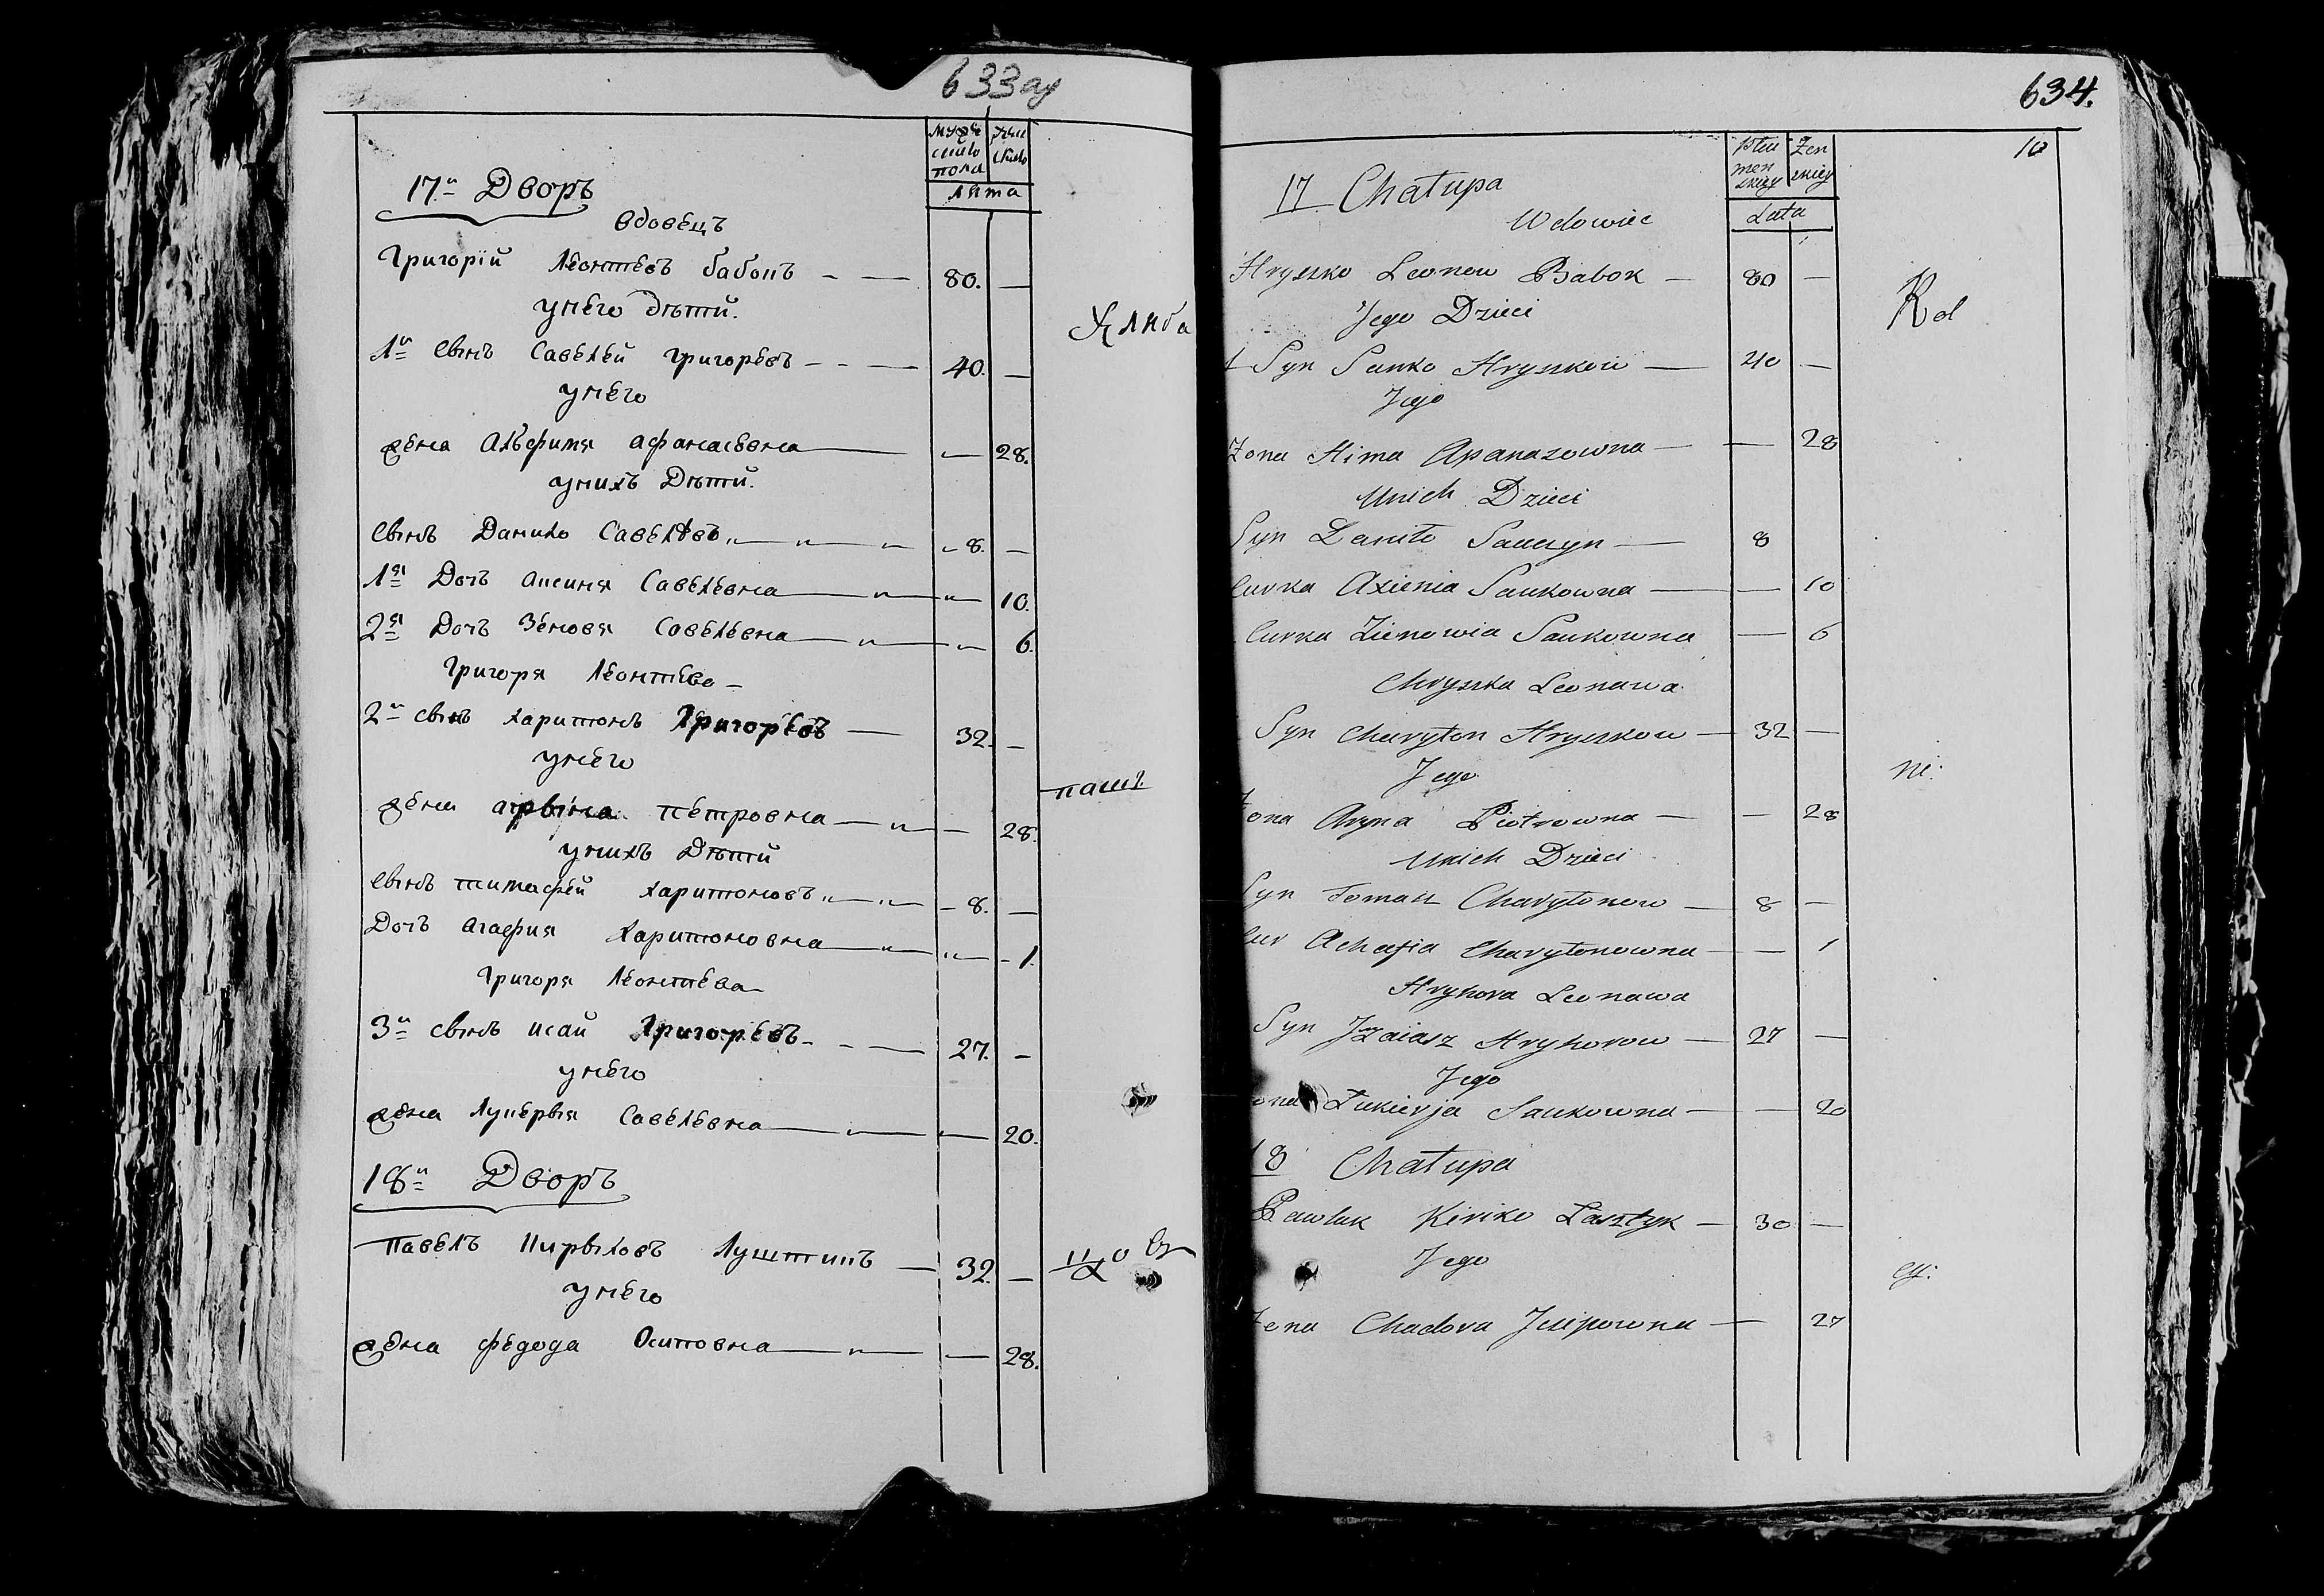 633
мужеска пола
лѣта
17й Дворъ
вдовецъ
Григорїй Леонтевъ бабокъ - — 80. —
у него дѣти.
1й сынъ Савелей Григоревъ - - — 40. —
у него
жена Афимя афанасевна — — 28.
у нихъ Дѣти.
сынъ Данило Савелевъ — 8. —
1я Дочъ аксиня Савелевна — — 10.
2я Дочъ Зеновя Савелевна — — 6.
Григоря Леонтева -
2й сынъ харитонъ Григоревъ — 32. —
у него
жена арына петровна — — 28.
у нихъ Дѣти
сынъ тимафей харитоновъ — 8. —
Дочъ агафия харитоновна — — 1.
Григоря Леонтева
3й сынъ исай Григоревъ - - — 27. —
у него
жена лукерья Савелевна — — 20.
18й Дворъ
павелъ кирыловъ луштикъ — 32. —
у него
жена федода Осиповна — — 28.
634.
10
Lata
17 Chałupa
Wdowiec
Hryszko Leonow Babok — 80 —
Jego Dzieci
1 Syn Sauko Hryszkow — 40 —
Jego
Żona Hima Apanazowna — — 28
U nich Dzieci
Syn Daniło Sauczyn — 8
Curka Axienia Saukowna — — 10
Curka Zienowia Saukowna — 6
Chryszka Leonawa
Syn Charyton Hryszkow — 32 —
Jego
Żona Aryna Piotrowna — — 28
U nich Dzieci
Syn Tomasz Charytonow — 8 —
Cur Achafia Charytonowna — — 1
Hryhora Leonawa
Syn Jzaiasz Hryhorow — 27 —
Jego
Żona Łukierja Saukowna — — 20
18 Chałupa
Pawluk Kiriko Łasztyk — 30 —
Jego
Żena Chadora Jusipowna — 27